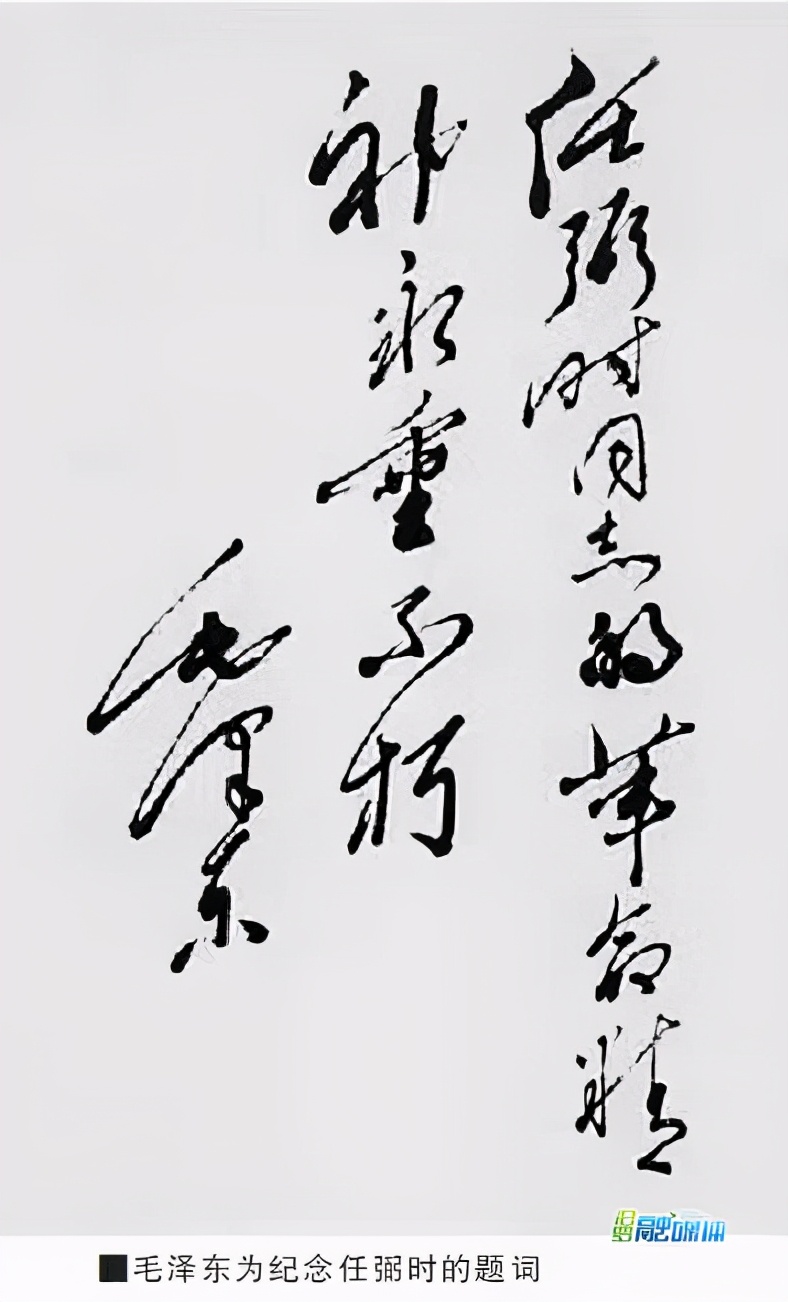 任弼时同志的革命精
神永垂不朽
毛泽东
汨罗融媒体
■毛泽东为纪念任弼时的题词